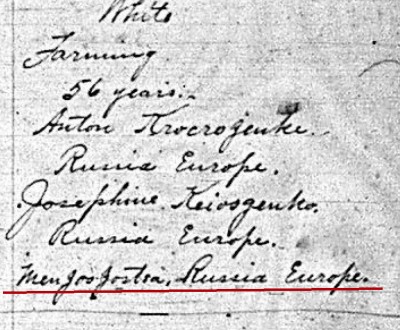 White
Farming
56 years.
Anton
Russia Europe.
Josephine
Russia Europe.
Russia Europe.